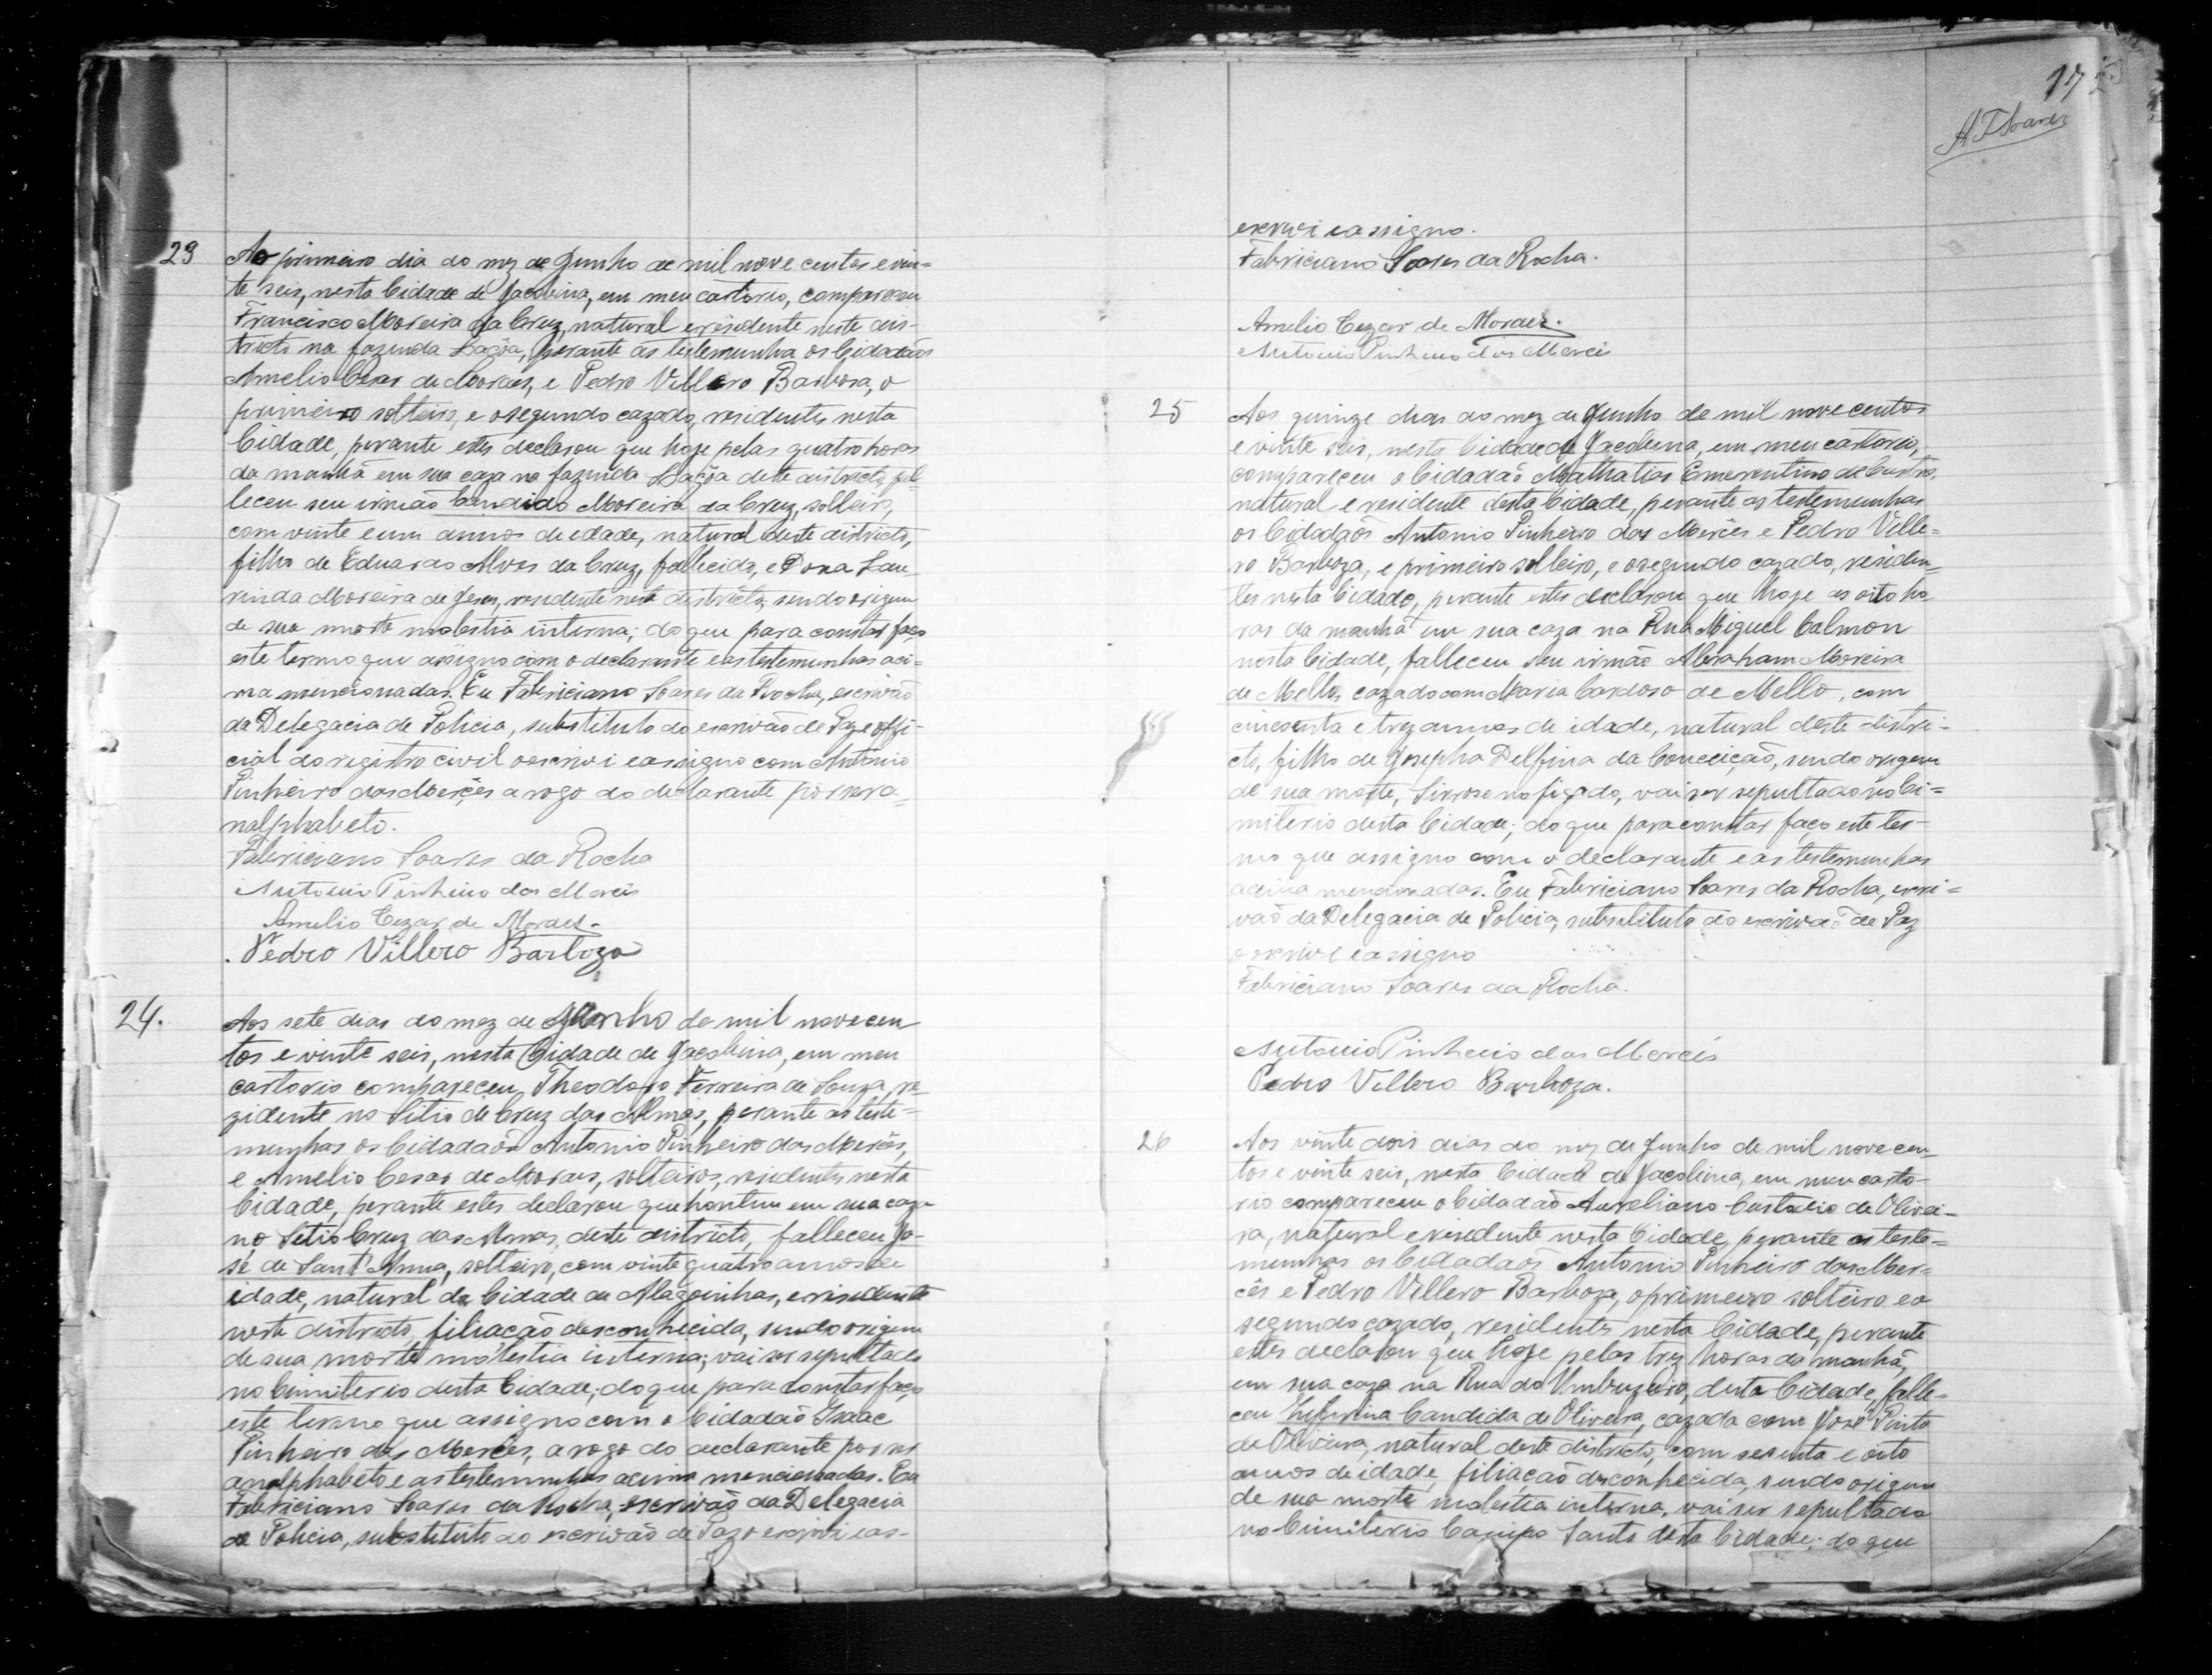 23
Ao primeiro dia do mez de Junho de mil nove centos e vin=
te seis, nesta Cidade de Jacobina, em meu cartorio, compareceu
Francisco Moreira da Cruz, natural e residente neste dis-
tricto na fazenda Lagôa, perante as testemunha os Cidadãos
Amelio Cesar de Moraes, e Pedro Villero Barbosa, o
primeiro solteiro, e o segundo cazado, residentes nesta
Cidade, perante estes declarou que hoje pelas quatro horas
da manhã em sua caza na fazenda Lagôa deste districto, fal-
leceu seu irmão Candido Moreira da Cruz, solteiro,
com vinte e um annos de edade, natural deste districto,
filho de Eduardo Alves da Cruz, fallecido, e Dona Lau-
rinda Moreira de Jesus, residente neste districto, sendo origem
de sua morte molestia interna; do que para constar faço
este termo que assigno com o declarante e as testemunhas aci=
ma mencionadas. Eu Fabriciano Soares da Rocha, escrivão
da Delegacia de Policia, substituto do escrivão de Paz e offi-
cial do registro civil o escrivi e assigno com Antonio
Pinheiro das Mercês a rogo do declarante por ser a=
nalphabeto.
Fabriciano Soares da Rocha
Antonio Pinheiro das Mercês
Amelio Cezar de Moraes.
Pedro Villero Barboza
24.
Aos sete dias do mez de Junho de mil novecen
tos e vinte seis, nesta Cidade de Jacobina, em meu
cartorio compareceu, Theodoro Ferreira de Souza, re-
zidente no Sitio de Cruz das Almas, perante as teste=
munhas os Cidadaõs Antonio Pinheiro das Mercês,
e Amelio Cesar de Moraes, solteiros, residentes nesta
Cidade, perante estes declarou que hontem em sua caza
no Sitio Cruz das Almas, deste districto, falleceu Jo-
sé de Sant'Anna, solteiro, com vinte quatro annos de
idade, natural da Cidade de Alagoinhas, e residente
neste districto, filiacão desconhecida, sendo origem
de sua morte molestia interna; vai ser sepultado
no Cimiterio desta Cidade; do que para constar faço
este termo que assigno com o Cidadaõ Isaac
Pinheiro das Mercês, a rogo do declarante por ser
analphabeto e as testemunhas acima mencionadas. Eu
Fabriciano Soares da Rocha, escrivão da Delegacia
de Policia, substituto do escrivão de Paz o escrivi e as-
17
A.T.Soares
escrivi e assigno.
Fabriciano Soares da Rocha.
Amelio Cezar de Moraes.
Antonio Pinheiro das Mercês
25
Aos quinze dias do mez de Junho de mil nove centos
e vinte seis, nesta Cidade de Jacobina, em meu cartorio,
compareceu o Cidadaõ Mathatias Emerentino de Castro,
natural e residente desta Cidade, perante as testemunhas
os Cidadãos Antonio Pinheiro das Mercês e Pedro Ville=
ro Barboza, e primeiro solteiro, e o segundo cazado, residen
tes nesta Cidade, perante estes declarou que hoje as oito ho
ras da manhã em sua caza na Rua Miguel Calmon
nesta Cidade, falleceu seu irmão Abraham Moreira
de Mello, cazado com Maria Cardoso de Mello, com
cincoenta e trez annos de idade, natural deste distri-
cto, filho de Josepha Delfina da Conceição, sendo origem
de sua morte, Sirrose no figado, vai ser sepultado no Ci=
miterio desta Cidade; do que para constar faço este ter-
mo que assigno com o declarante e as testemunhas
acima mencionadas. Eu Fabriciano Soares da Rocha, escri=
vaõ da Delegacia de Policia, substituto do escrivaõ de Paz
o escrivi e assigno
Fabriciano Soares da Rocha.
Antonio Pinheiro das Mercês
Pedro Villero Barboza.
26
Aos vinte dois dias do mez de Junho de mil nove cen
tos e vinte seis, nesta Cidade de Jacobina, em meu carto-
rio compareceu o Cidadaõ Aureliano Custodio de Olivei-
ra, natural e residente nesta Cidade, perante as teste=
munhas os Cidadaõs Antonio Pinheiro das Mer=
cês e Pedro Villero Barboza, o primeiro solteiro e o
segundo cazado, residentes nesta Cidade, perante
estes declarou que hoje pelas trez horas da manhã,
em sua caza na Rua do Umbuzeiro, desta Cidade, falle-
ceu Zeferina Candida de Oliveira, cazada com José Pinto
de Oliveira, natural deste districto, com sesenta e oito
annos de idade, filiação desconhecida, sendo origem
de sua morte molestia interna, vai ser sepultada
no Cimiterio Campo Santo desta Cidade; do que